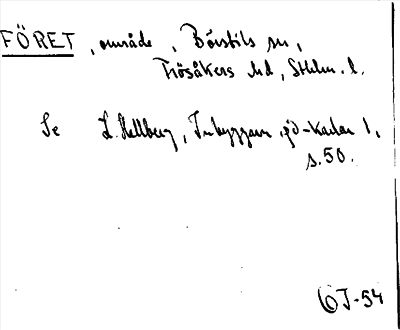 FÖRET, område, Börstils sn,
Frösåkers hd, Sthlm. l.
Se L. Hellberg, Inbyggarn. på -karlar 1,
s. 50.
6J-54